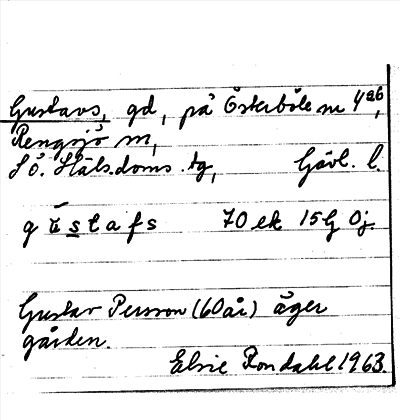 Gustavs, gd, på Österböle nr 4ab,
Rengsjö sn,
Sö. Häls. doms. tg, Gävl. l.
g ū s t a f s 70 ek 15 G Öj.
Gustav Persson (60 år) äger
gården.
Elsie Rondahl 1963.